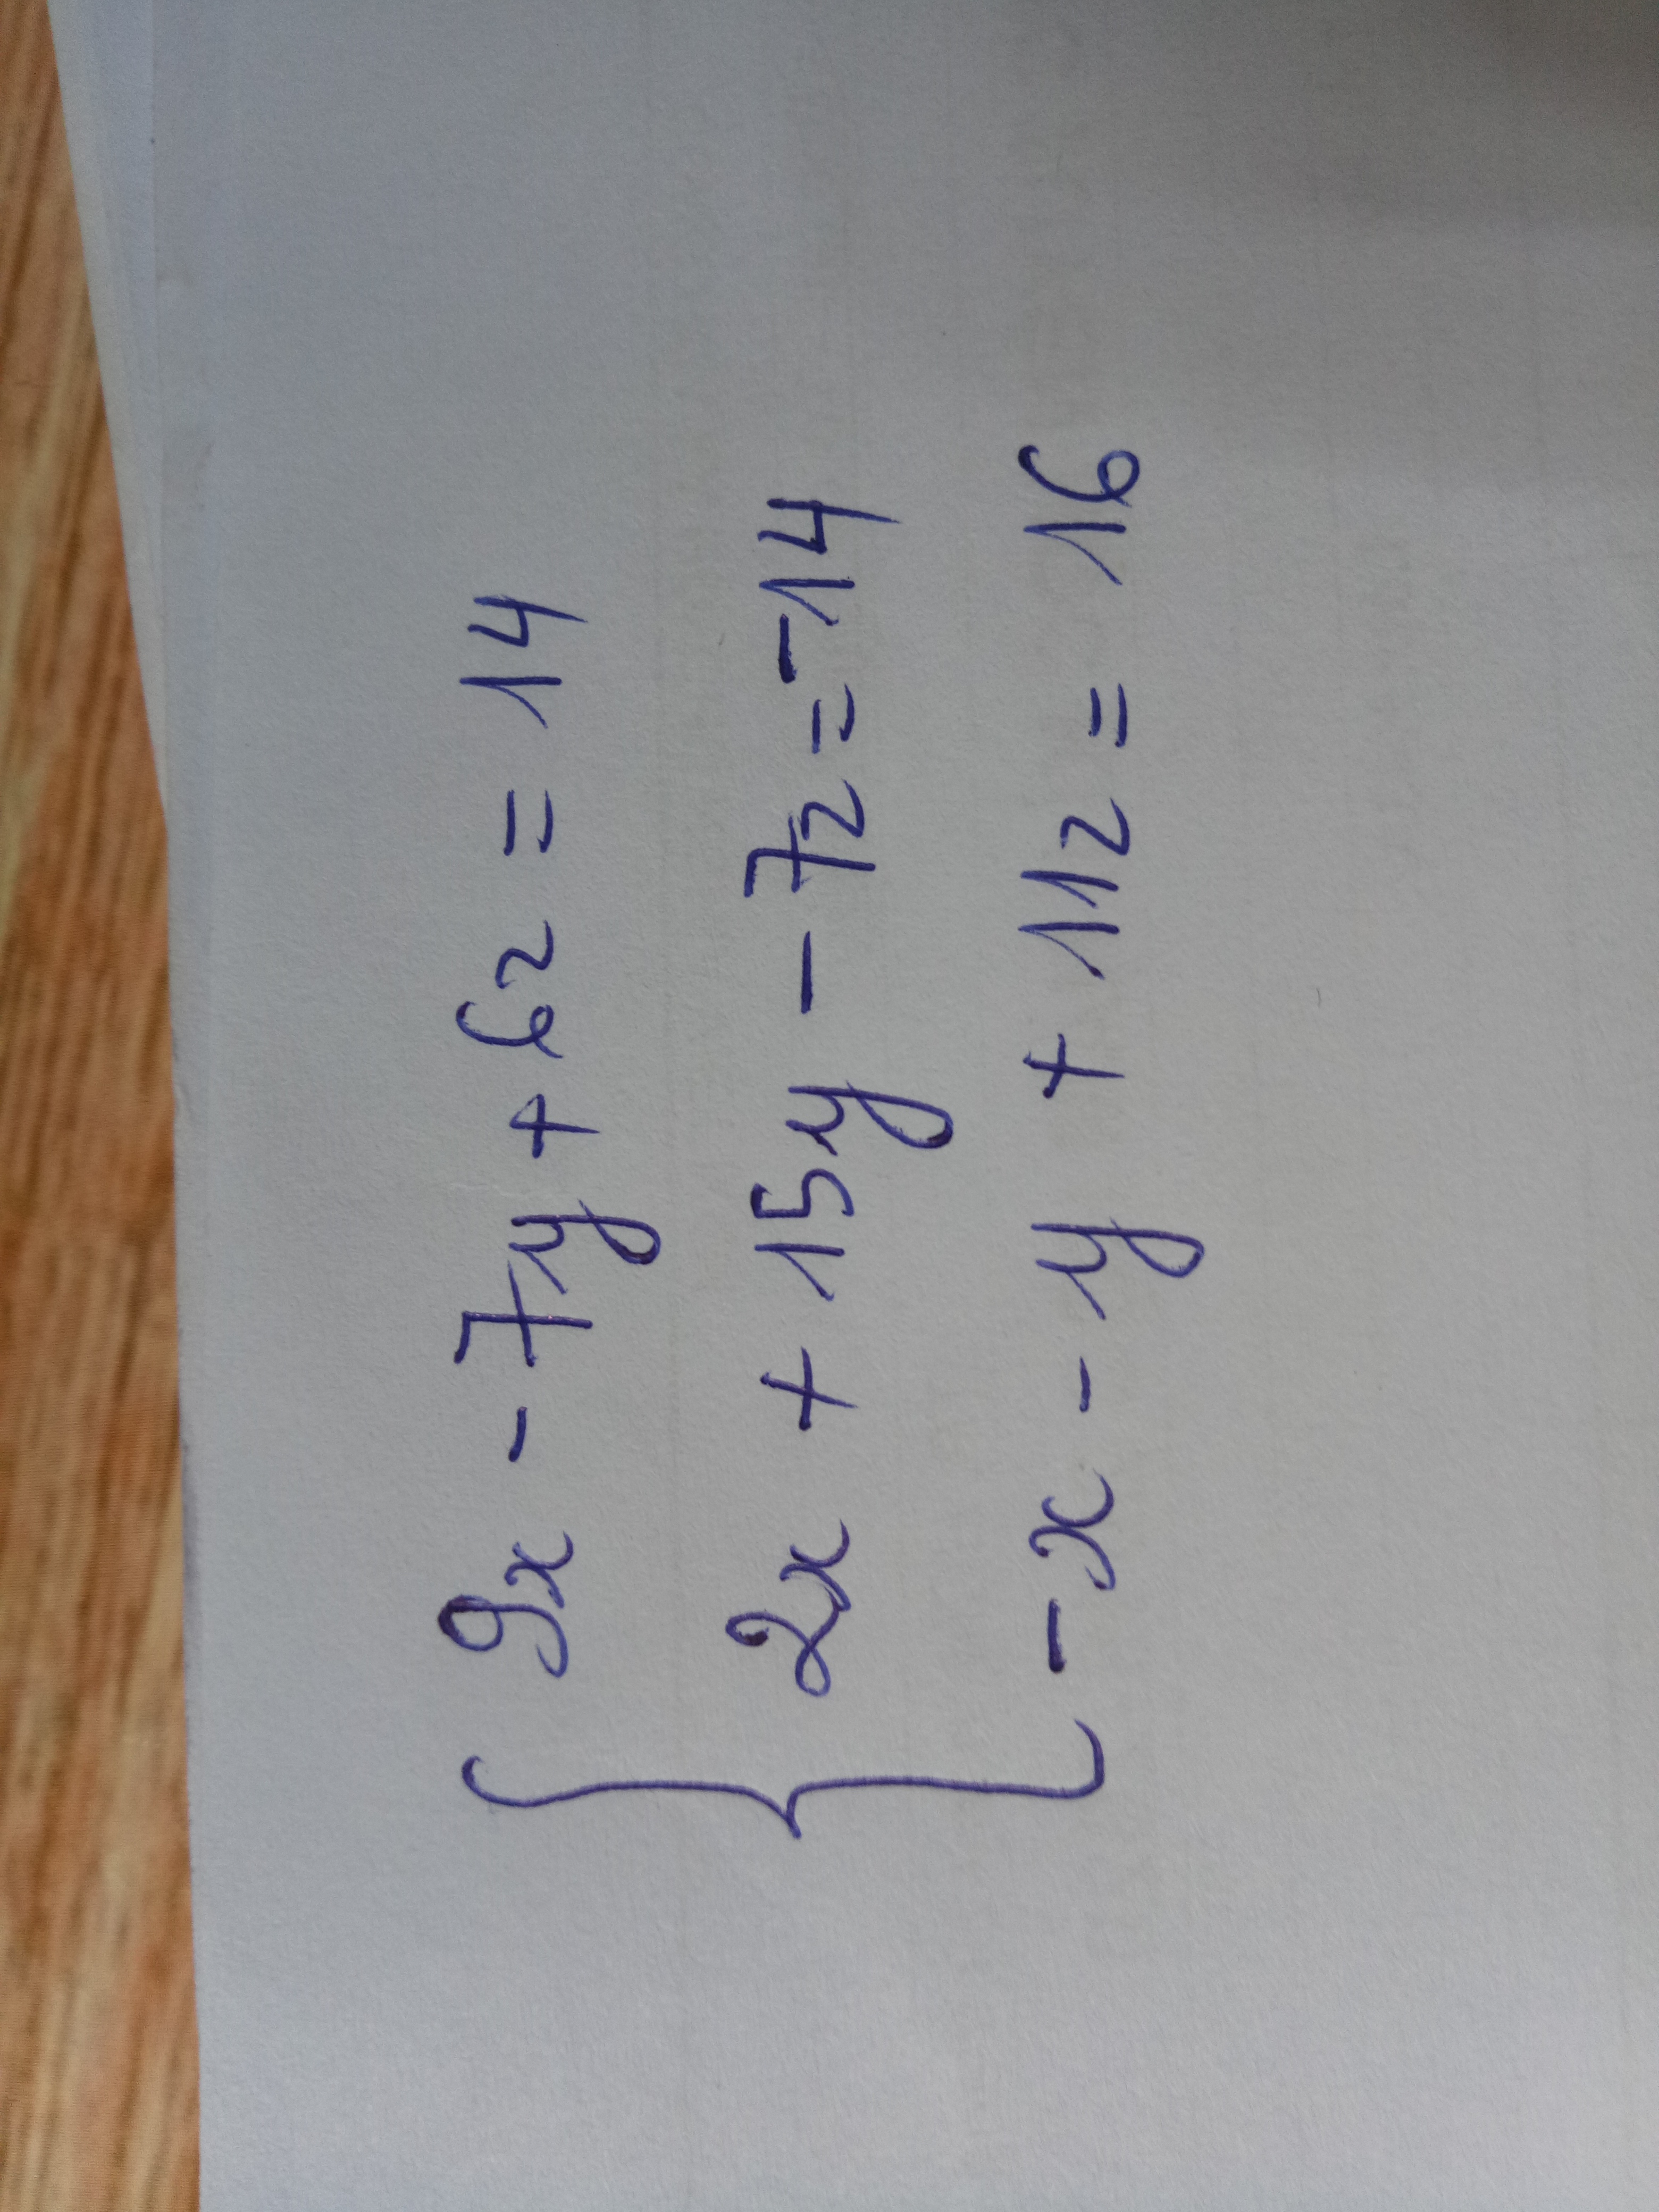 9x - 7y + 6z = 14
2x + 15y - 7z = -14
-x - y + 11z = 16